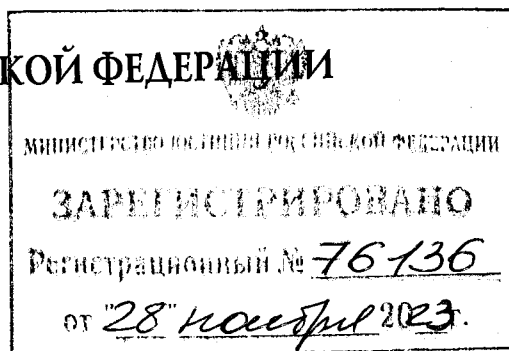 КОЙ ФЕДЕРАЦИИ
МИНИСТЕРСТВО ЮСТИЦИИ РОССИЙСКОЙ ФЕДЕРАЦИИ
ЗАРЕГИСТРИРОВАНО
Регистрационный № 76136
от "28" ноября 2023г.